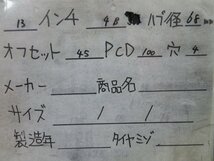 13 インチ 4B ハブ径 68
オフセット 45 PCD 100 穴 4
メーカー 商品名
サイズ / /
製造年 タイヤミゾ